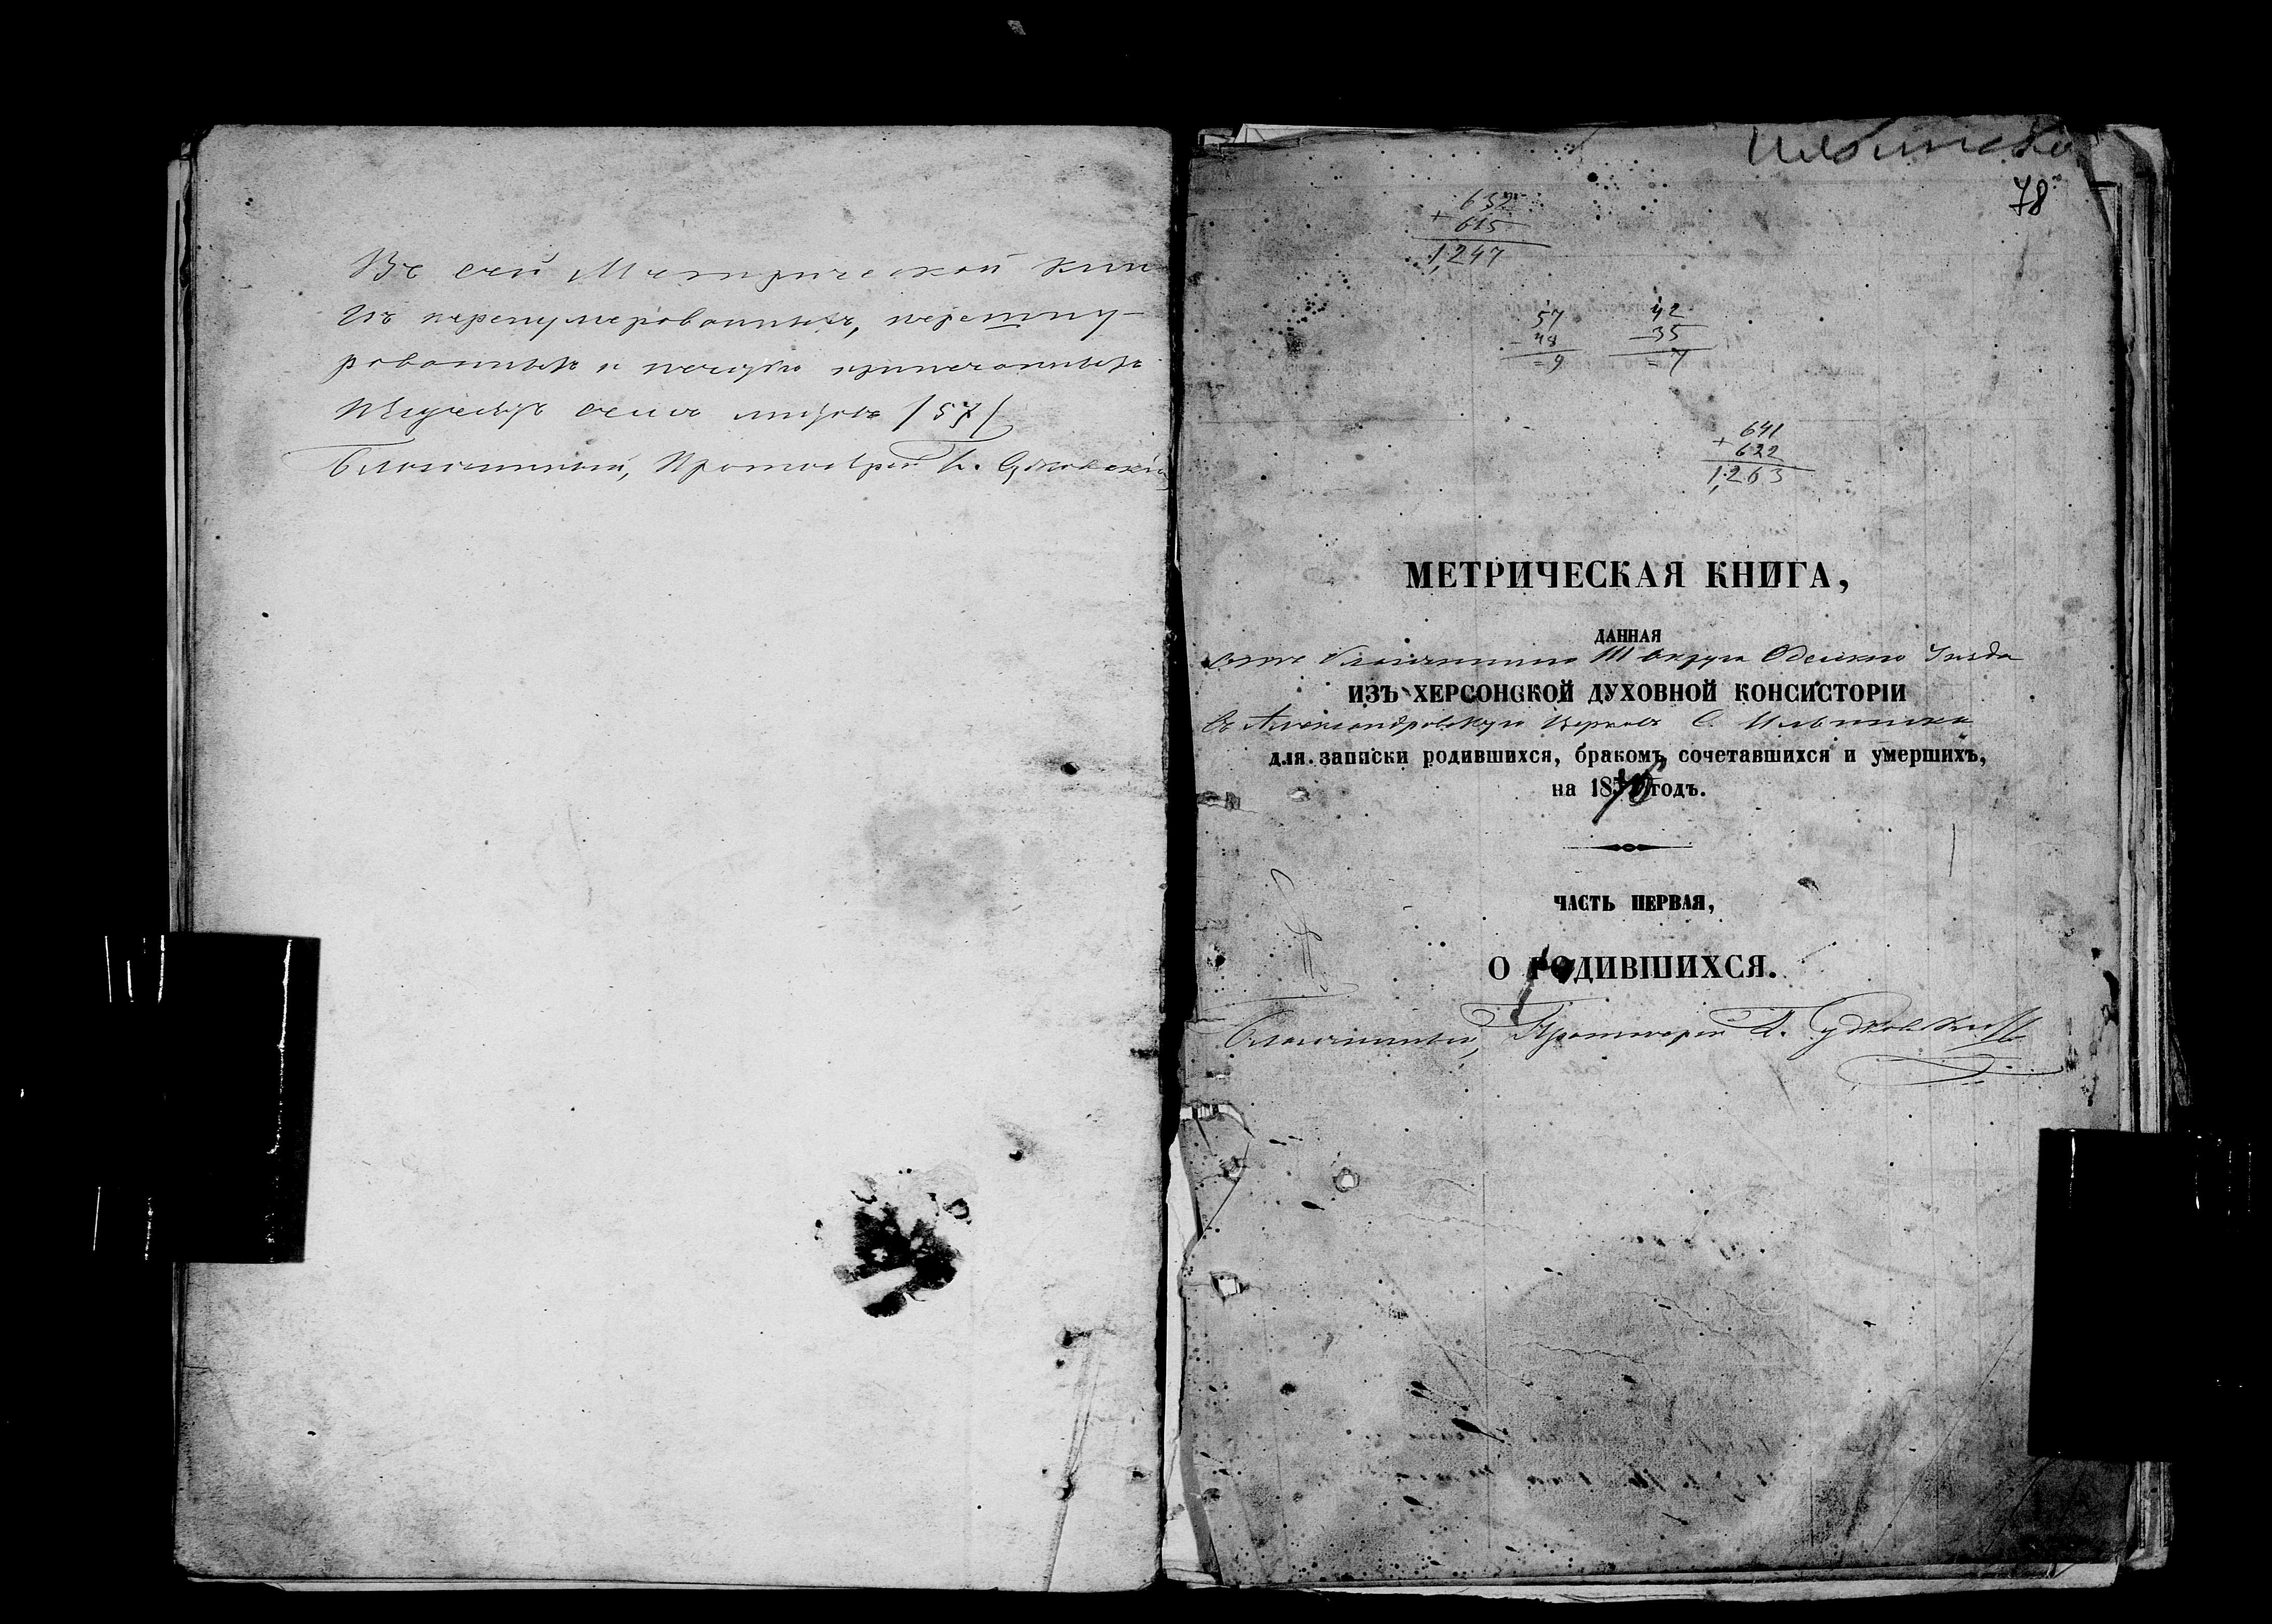 Въ сей Метрической кни-
гѣ перенумерованныхъ, перешну-
рованныхъ и печатью припечатанныхъ
семь листовъ /57/
Благочинный, Протоіерей
Ильинска
78
632
+ 615
1,247
57
- 48
= 9
42
- 35
= 7
641
+ 622
1,263
МЕТРИЧЕСКАЯ КНИГА,
ДАННАЯ
Благочиннаго III Округа Одескаго Уѣзда
ИЗЪ ХЕРСОНСКОЙ ДУХОВНОЙ КОНСИСТОРІИ
въ Александровскую Церковь С. Ильинки
для записки родившихся, бракомъ сочетавшихся и умершихъ,
на 18 годъ.
ЧАСТЬ ПЕРВАЯ,
О РОДИВШИХСЯ.
Благочинный, Протоіерей